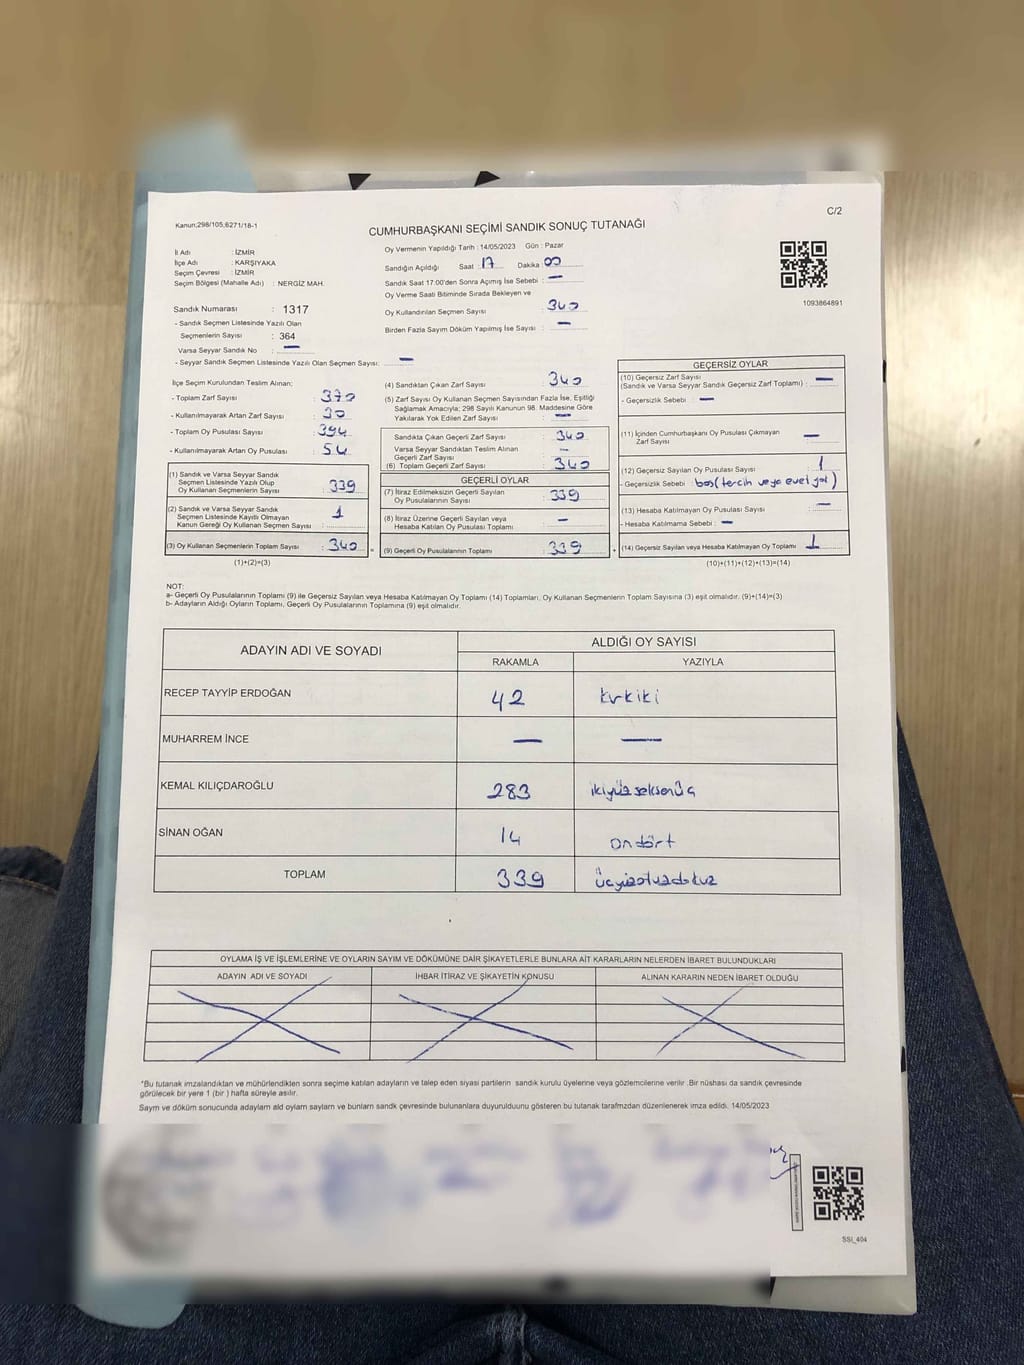 C/2
Kanun;298/105,6271/18-1
CUMHURBAŞKANI SEÇİMİ SANDIK SONUÇ TUTANAĞI
İl Adı : İZMİR
İlçe Adı : KARŞIYAKA
Seçim Çevresi : İZMİR
Seçim Bölgesi (Mahalle Adı) : NERGİZ MAH.
Oy Vermenin Yapıldığı Tarih : 14/05/2023 Gün : Pazar
Sandığın Açıldığı Saat : 17 Dakika : 00
Sandık Saat 17:00'den Sonra Açılmış İse Sebebi : —
Oy Verme Saati Bitiminde Sırada Bekleyen ve
Oy Kullandırılan Seçmen Sayısı : 340
Birden Fazla Sayım Döküm Yapılmış İse Sayısı : —
1093864891
Sandık Numarası : 1317
- Sandık Seçmen Listesinde Yazılı Olan
Seçmenlerin Sayısı : 364
Varsa Seyyar Sandık No : —
- Seyyar Sandık Seçmen Listesinde Yazılı Olan Seçmen Sayısı: —
İlçe Seçim Kurulundan Teslim Alınan;
- Toplam Zarf Sayısı : 370
- Kullanılmayarak Artan Zarf Sayısı : 30
- Toplam Oy Pusulası Sayısı : 394
- Kullanılmayarak Artan Oy Pusulası : 54
(1) Sandık ve Varsa Seyyar Sandık
Seçmen Listesinde Yazılı Olup
Oy Kullanan Seçmenlerin Sayısı : 339
(2) Sandık ve Varsa Seyyar Sandık
Seçmen Listesinde Kayıtlı Olmayan
Kanun Gereği Oy Kullanan Seçmen Sayısı : 1
(3) Oy Kullanan Seçmenlerin Toplam Sayısı : 340 =
(1)+(2)=(3)
(4) Sandıktan Çıkan Zarf Sayısı : 340
(5) Zarf Sayısı Oy Kullanan Seçmen Sayısından Fazla İse, Eşitliği
Sağlamak Amacıyla; 298 Sayılı Kanunun 98. Maddesine Göre
Yakılarak Yok Edilen Zarf Sayısı : —
Sandıkta Çıkan Geçerli Zarf Sayısı : 340
Varsa Seyyar Sandıktan Teslim Alınan
Geçerli Zarf Sayısı : —
(6) Toplam Geçerli Zarf Sayısı : 340
GEÇERLİ OYLAR
(7) İtiraz Edilmeksizin Geçerli Sayılan
Oy Pusulalarının Sayısı : 339
(8) İtiraz Üzerine Geçerli Sayılan veya
Hesaba Katılan Oy Pusulası Toplamı : —
(9) Geçerli Oy Pusulalarının Toplamı : 339 +
GEÇERSİZ OYLAR
(10) Geçersiz Zarf Sayısı
(Sandık ve Varsa Seyyar Sandık Geçersiz Zarf Toplamı) : —
- Geçersizlik Sebebi : —
(11) İçinden Cumhurbaşkanı Oy Pusulası Çıkmayan
Zarf Sayısı : —
(12) Geçersiz Sayılan Oy Pusulası Sayısı : 1
- Geçersizlik Sebebi : boş (tercih veya evet yok)
(13) Hesaba Katılmayan Oy Pusulası Sayısı : —
- Hesaba Katılmama Sebebi : —
(14) Geçersiz Sayılan veya Hesaba Katılmayan Oy Toplamı : 1
(10)+(11)+(12)+(13)=(14)
NOT:
a- Geçerli Oy Pusulalarının Toplamı (9) ile Geçersiz Sayılan veya Hesaba Katılmayan Oy Toplamı (14) Toplamları, Oy Kullanan Seçmenlerin Toplam Sayısına (3) eşit olmalıdır. (9)+(14)=(3)
b- Adayların Aldığı Oyların Toplamı, Geçerli Oy Pusulalarının Toplamına (9) eşit olmalıdır.
ADAYIN ADI VE SOYADI ALDIĞI OY SAYISI
RAKAMLA YAZIYLA
RECEP TAYYİP ERDOĞAN 42 kırkiki
MUHARREM İNCE — —
KEMAL KILIÇDAROĞLU 283 ikiyüzseksenüç
SİNAN OĞAN 14 ondört
TOPLAM 339 üçyüzotuzdokuz
OYLAMA İŞ VE İŞLEMLERİNE VE OYLARIN SAYIM VE DÖKÜMÜNE DAİR ŞİKAYETLERLE BUNLARA AİT KARARLARIN NELERDEN İBARET BULUNDUKLARI
ADAYIN ADI VE SOYADI İHBAR İTİRAZ VE ŞİKAYETİN KONUSU ALINAN KARARIN NEDEN İBARET OLDUĞU
*Bu tutanak imzalandıktan ve mühürlendikten sonra seçime katılan adayların ve talep eden siyasi partilerin sandık kurulu üyelerine veya gözlemcilerine verilir .Bir nüshası da sandık çevresinde
görülecek bir yere 1 (bir ) hafta süreyle asılır.
Sayım ve döküm sonucunda adayların ald oyların sayların ve bunların sandk çevresinde bulunanlara duyurulduunu gösteren bu tutanak tarafmzdan düzenlenerek imza edildi. 14/05/2023
SSİ_404